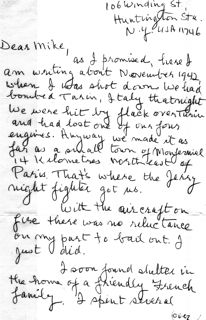 106 Winding St.
Huntington Sta.
N.Y. USA 11746
Dear Mike,
as I promised, here I
am writing about November 1942
when I was shot down. We had
bombed Turin, Italy that night
We were hit by flack over Turin
and had lost one of our four
engines. Anyway we made it as
far as a small town of
14 Kilometres north east of
Paris. That's where the Jerry
night fighter got us.
With the aircraft on
fire there was no reluctance
on my part to bail out. I
just did.
I soon found shelter in
the home of a friendly French
family. I spent several